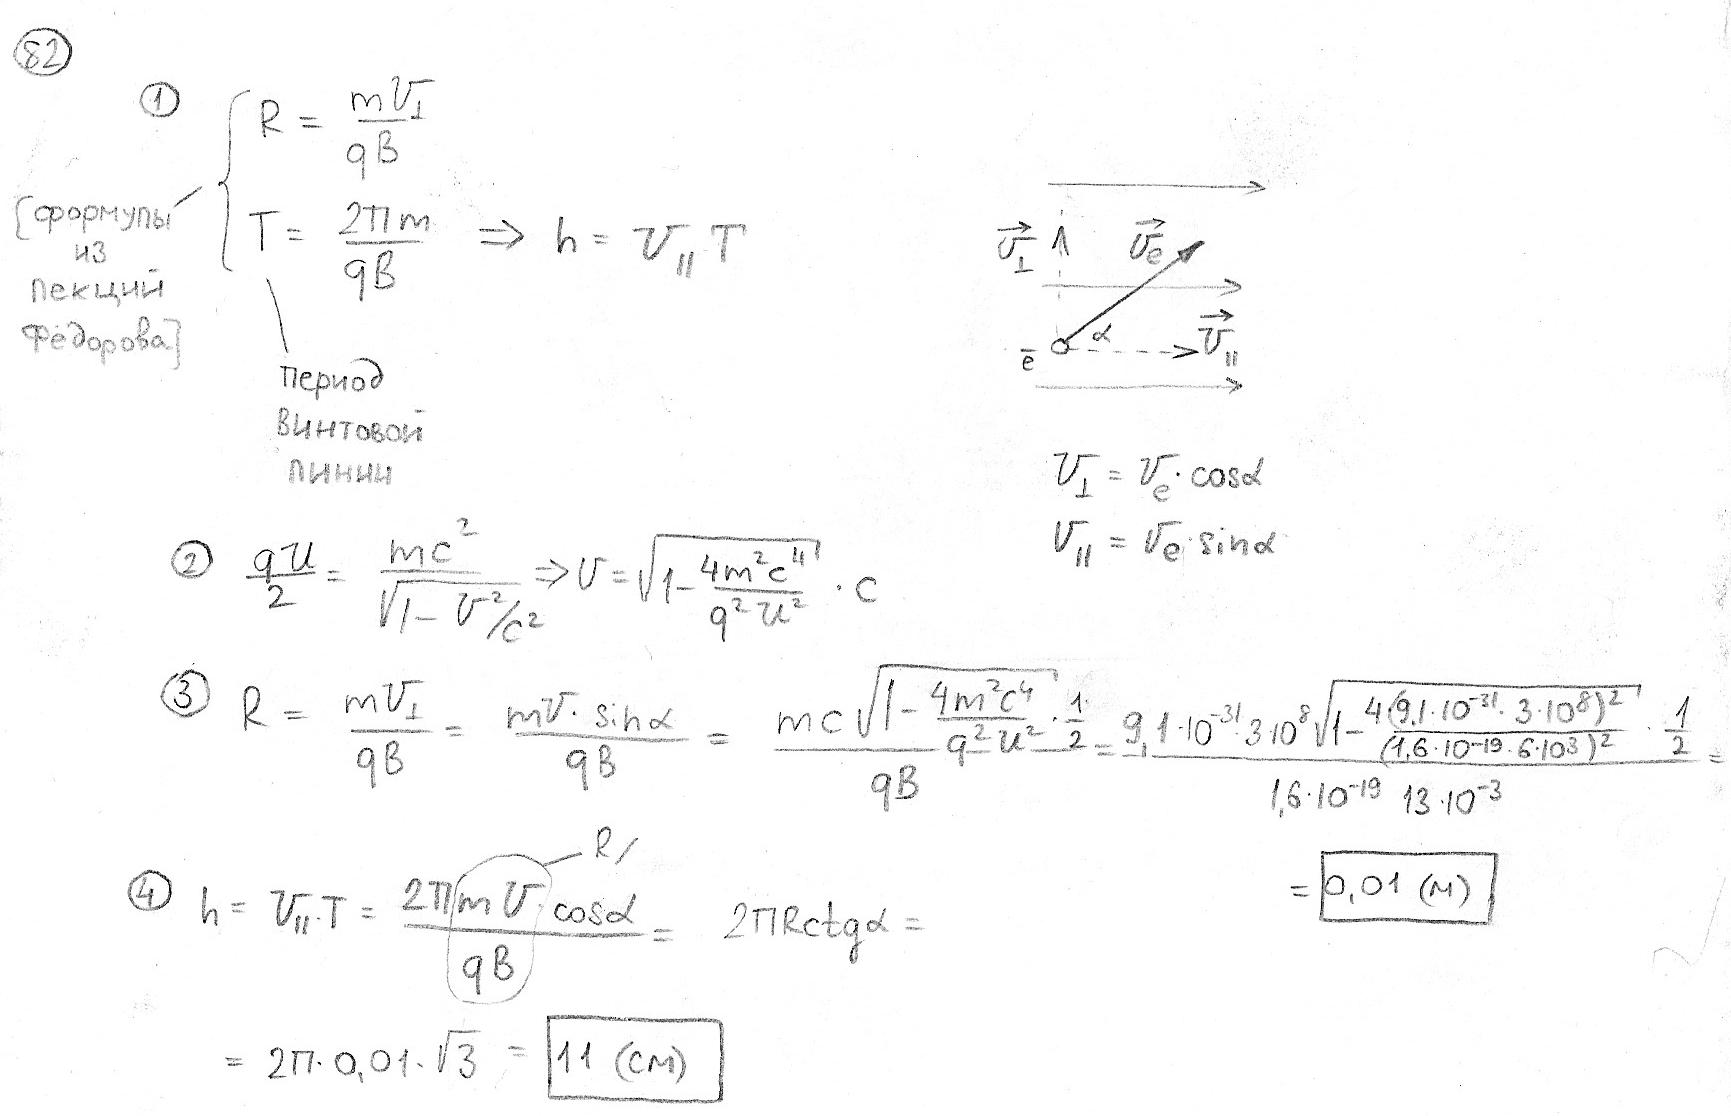 82
① R = mV⊥/qB
[формулы из лекций Фёдорова]
T = 2πm/qB ⇒ h = V∥ T
период винтовой линии
V⊥ Vₑ
ē α V∥
V⊥ = Vₑ · cosα
V∥ = Vₑ · sinα
② qU/2 = mc²/√(1 - V²/c²) ⇒ V = √(1 - 4m²c⁴/q²U²) · c
③ R = mV⊥/qB = mV · sinα/qB = mc√(1 - 4m²c⁴/q²U²) · 1/2 / qB = 9,1·10⁻³¹·3·10⁸√(1 - 4(9,1·10⁻³¹·3·10⁸)²/(1,6·10⁻¹⁹·6·10³)²) · 1/2 / 1,6·10⁻¹⁹ 13·10⁻³ =
= 0,01 (м)
R/
④ h = V∥·T = 2πmV·cosα/qB = 2πRctgα =
= 2π·0,01·√3 = 11 (см)